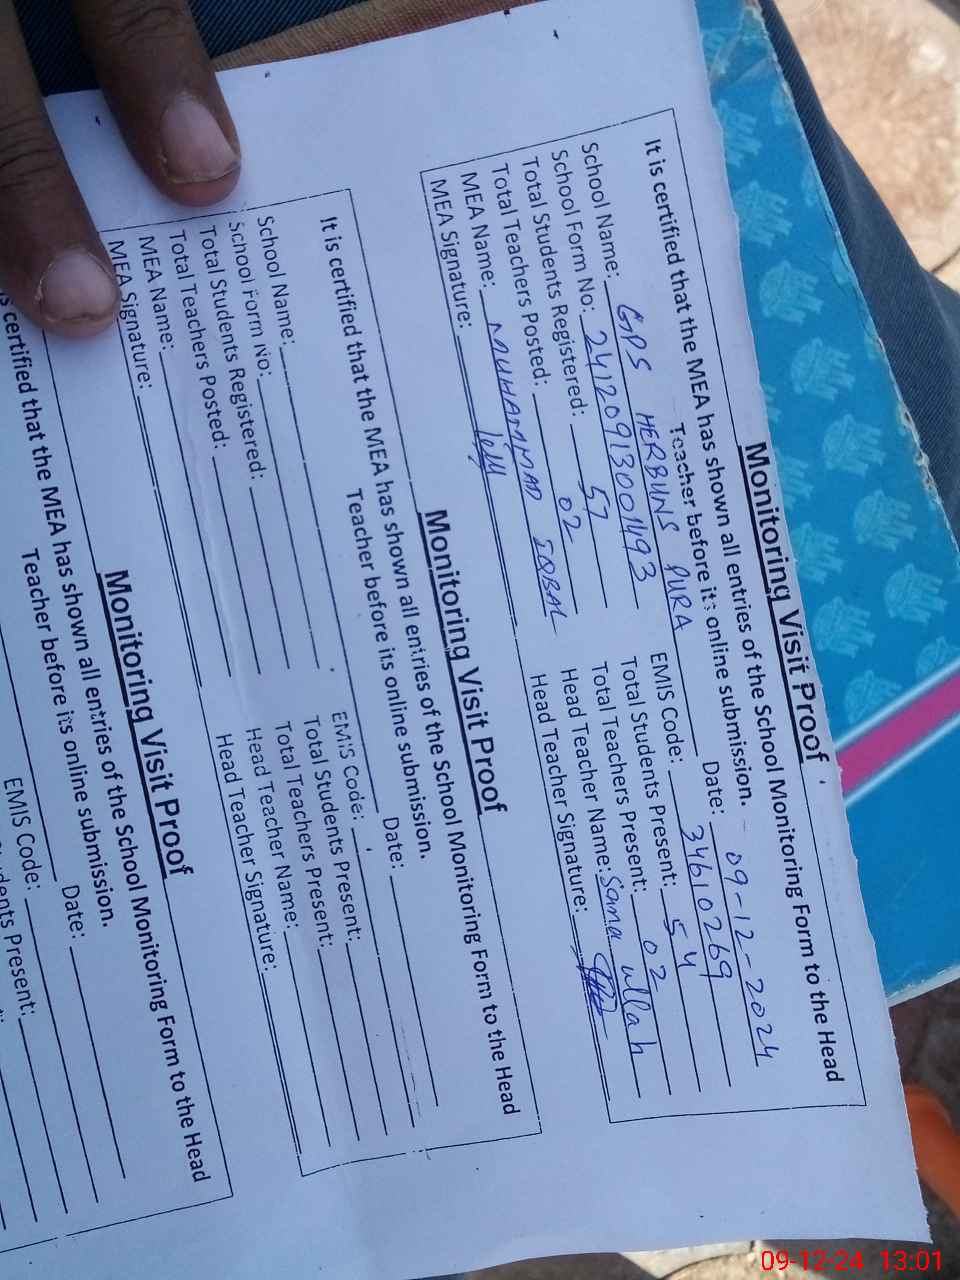 Monitoring Visit Proof
It is certified that the MEA has shown all entries of the School Monitoring Form to the Head
Teacher before its online submission.
Date: 09-12-2024
School Name: GPS HERBUNS PURA EMIS Code: 34610269
School Form No: 24120913001493 Total Students Present: 54
Total Students Registered: 57 Total Teachers Present: 02
Total Teachers Posted: 02 Head Teacher Name: Sana ullah
MEA Name: MUHAMMAD IQBAL Head Teacher Signature:
MEA Signature:
Monitoring Visit Proof
It is certified that the MEA has shown all entries of the School Monitoring Form to the Head
Teacher before its online submission.
Date:
School Name: EMIS Code:
School Form No: Total Students Present:
Total Students Registered: Total Teachers Present:
Total Teachers Posted: Head Teacher Name:
MEA Name: Head Teacher Signature:
MEA Signature:
Monitoring Visit Proof
s certified that the MEA has shown all entries of the School Monitoring Form to the Head
Teacher before its online submission.
Date:
EMIS Code:
dents Present:
09-12-24 13:01